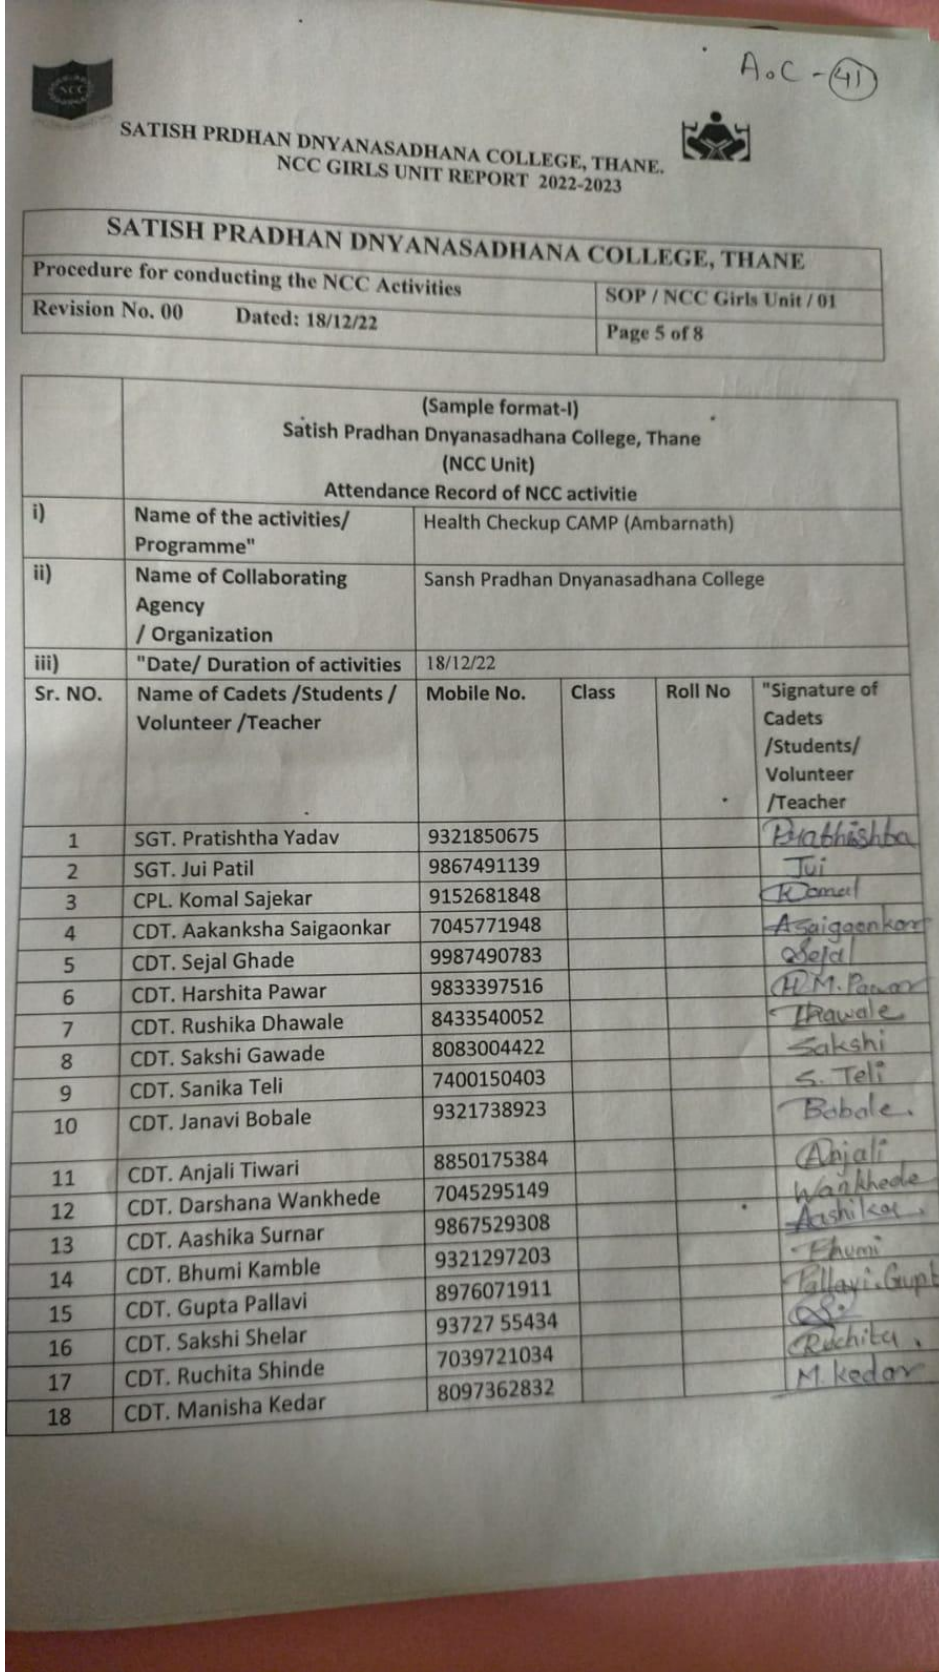 A.O.C - 41
NCC
SATISH PRDHAN DNYANASADHANA COLLEGE, THANE.
NCC GIRLS UNIT REPORT 2022-2023
SATISH PRADHAN DNYANASADHANA COLLEGE, THANE
Procedure for conducting the NCC Activities SOP / NCC Girls Unit / 01
Revision No. 00 Dated: 18/12/22 Page 5 of 8
(Sample format-I)
Satish Pradhan Dnyanasadhana College, Thane
(NCC Unit)
Attendance Record of NCC activitie
i) Name of the activities/ Health Checkup CAMP (Ambarnath)
Programme"
ii) Name of Collaborating Sansh Pradhan Dnyanasadhana College
Agency
/ Organization
iii) "Date/ Duration of activities 18/12/22
Sr. NO. Name of Cadets /Students / Mobile No. Class Roll No "Signature of
Volunteer /Teacher Cadets
/Students/
Volunteer
/Teacher
1 SGT. Pratishtha Yadav 9321850675
2 SGT. Jui Patil 9867491139 Jui
3 CPL. Komal Sajekar 9152681848 Komal
4 CDT. Aakanksha Saigaonkar 7045771948 Asaigaonkar
5 CDT. Sejal Ghade 9987490783 Sejal
6 CDT. Harshita Pawar 9833397516 H.M.Pawar
7 CDT. Rushika Dhawale 8433540052 Dhawale
8 CDT. Sakshi Gawade 8083004422 Sakshi
9 CDT. Sanika Teli 7400150403 S. Teli
10 CDT. Janavi Bobale 9321738923 Bobale.
11 CDT. Anjali Tiwari 8850175384 Anjali
12 CDT. Darshana Wankhede 7045295149 Wankhede
13 CDT. Aashika Surnar 9867529308 Aashika.
14 CDT. Bhumi Kamble 9321297203 Bhumi
15 CDT. Gupta Pallavi 8976071911 Pallavi.Gupt
16 CDT. Sakshi Shelar 93727 55434
17 CDT. Ruchita Shinde 7039721034 Ruchita.
18 CDT. Manisha Kedar 8097362832 M.kedar